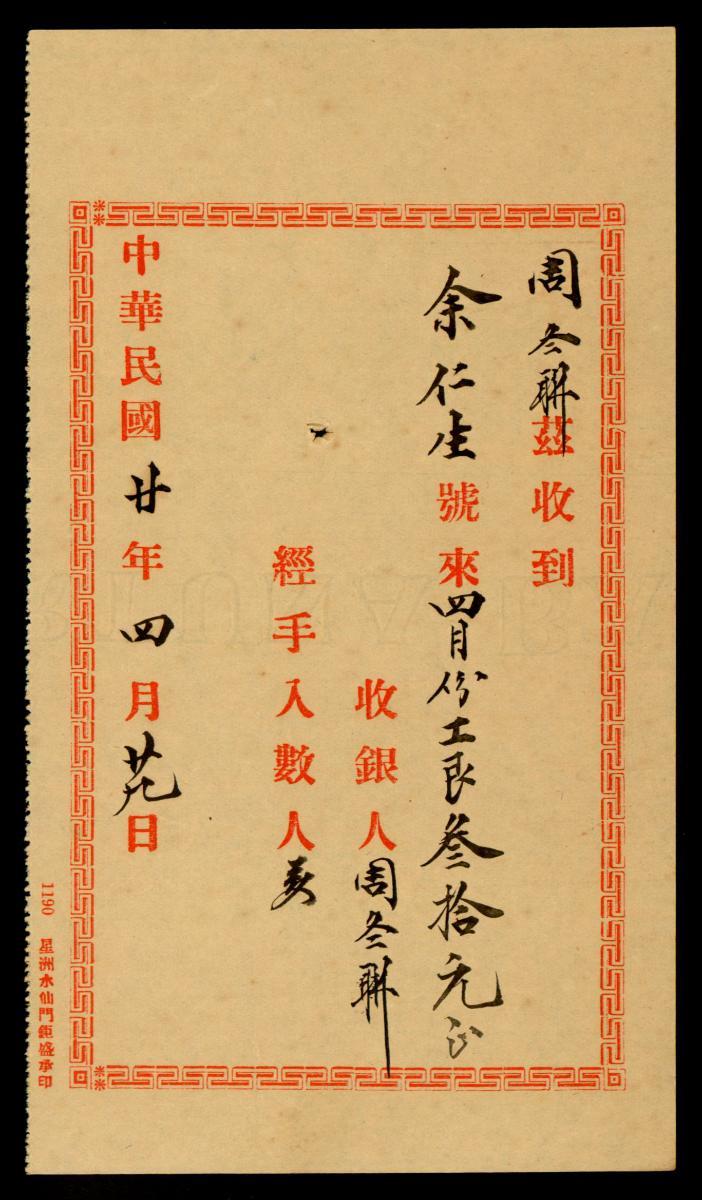 周冬聨茲收到
余仁生號來四月份工艮叁拾元正
收銀人周冬聨
經手入數人
中華民國廿年四月廿九日
1190 星洲水仙門鉅盛承印